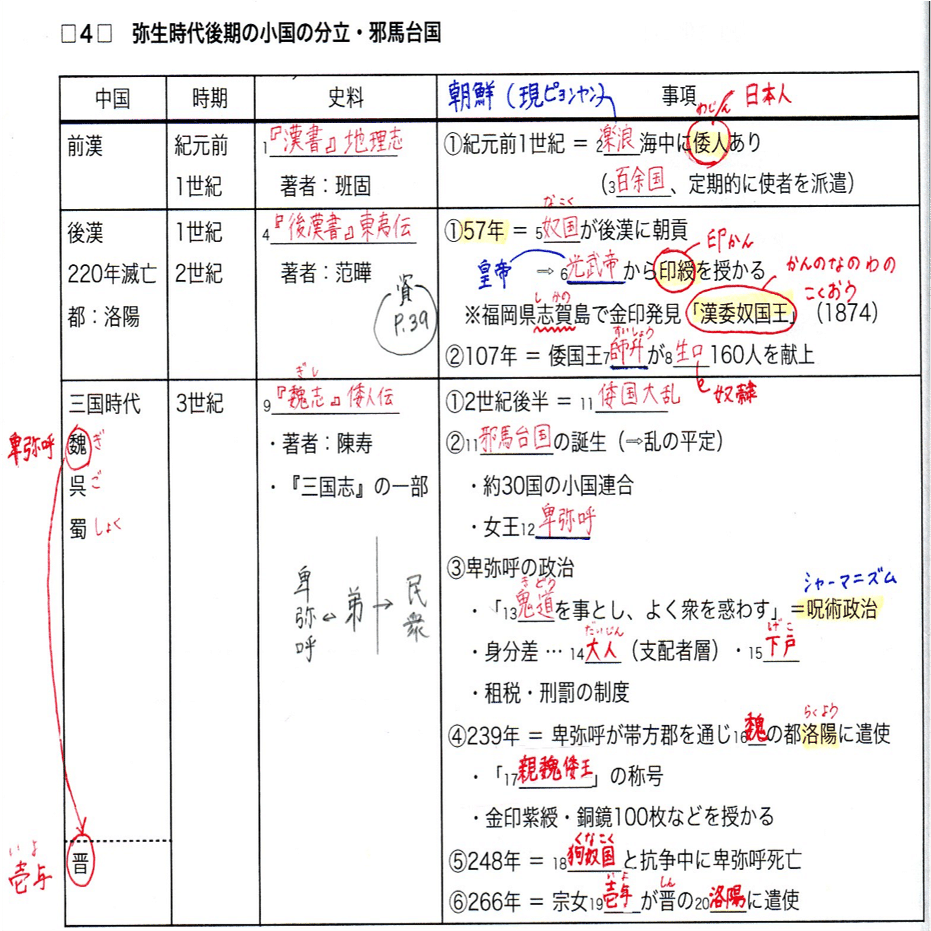 □4□ 弥生時代後期の小国の分立・邪馬台国
中国 時期 史料 事項
朝鮮(現ピョンヤン)
わじん
日本人
前漢
紀元前
1世紀
1『漢書』地理志
著者:班固
①紀元前1世紀 = 2楽浪海中に倭人あり
(3百余国、定期的に使者を派遣)
後漢
220年滅亡
都:洛陽
1世紀
2世紀
4『後漢書』東夷伝
著者:范曄
資
P.39
なこく
①57年 = 5奴国が後漢に朝貢
印かん
皇帝
⇒6光武帝から印綬を授かる
かんのなのわの
こくおう
しかの
※福岡県志賀島で金印発見「漢委奴国王」(1874)
すいしょう
②107年 = 倭国王7帥升が8生口160人を献上
奴隷
三国時代
卑弥呼
魏 ぎ
呉 ご
蜀 しょく
3世紀
ぎし
9『魏志』倭人伝
・著者:陳寿
・『三国志』の一部
卑弥呼 ↔ 弟 → 民衆
①2世紀後半 = 11倭国大乱
②11邪馬台国の誕生(⇒乱の平定)
・約30国の小国連合
・女王12卑弥呼
③卑弥呼の政治
シャーマニズム
きどう
・「13鬼道を事とし、よく衆を惑わす」=呪術政治
だいじん
げこ
・身分差…14大人(支配者層)・15下戸
・租税・刑罰の制度
らくよう
④239年 = 卑弥呼が帯方郡を通じ16魏の都洛陽に遣使
・「17親魏倭王」の称号
・金印紫綬・銅鏡100枚などを授かる
晋
いよ
壱与
くなこく
⑤248年 = 18狗奴国と抗争中に卑弥呼死亡
いよ
しん
⑥266年 = 宗女19壱与が晋の20洛陽に遣使